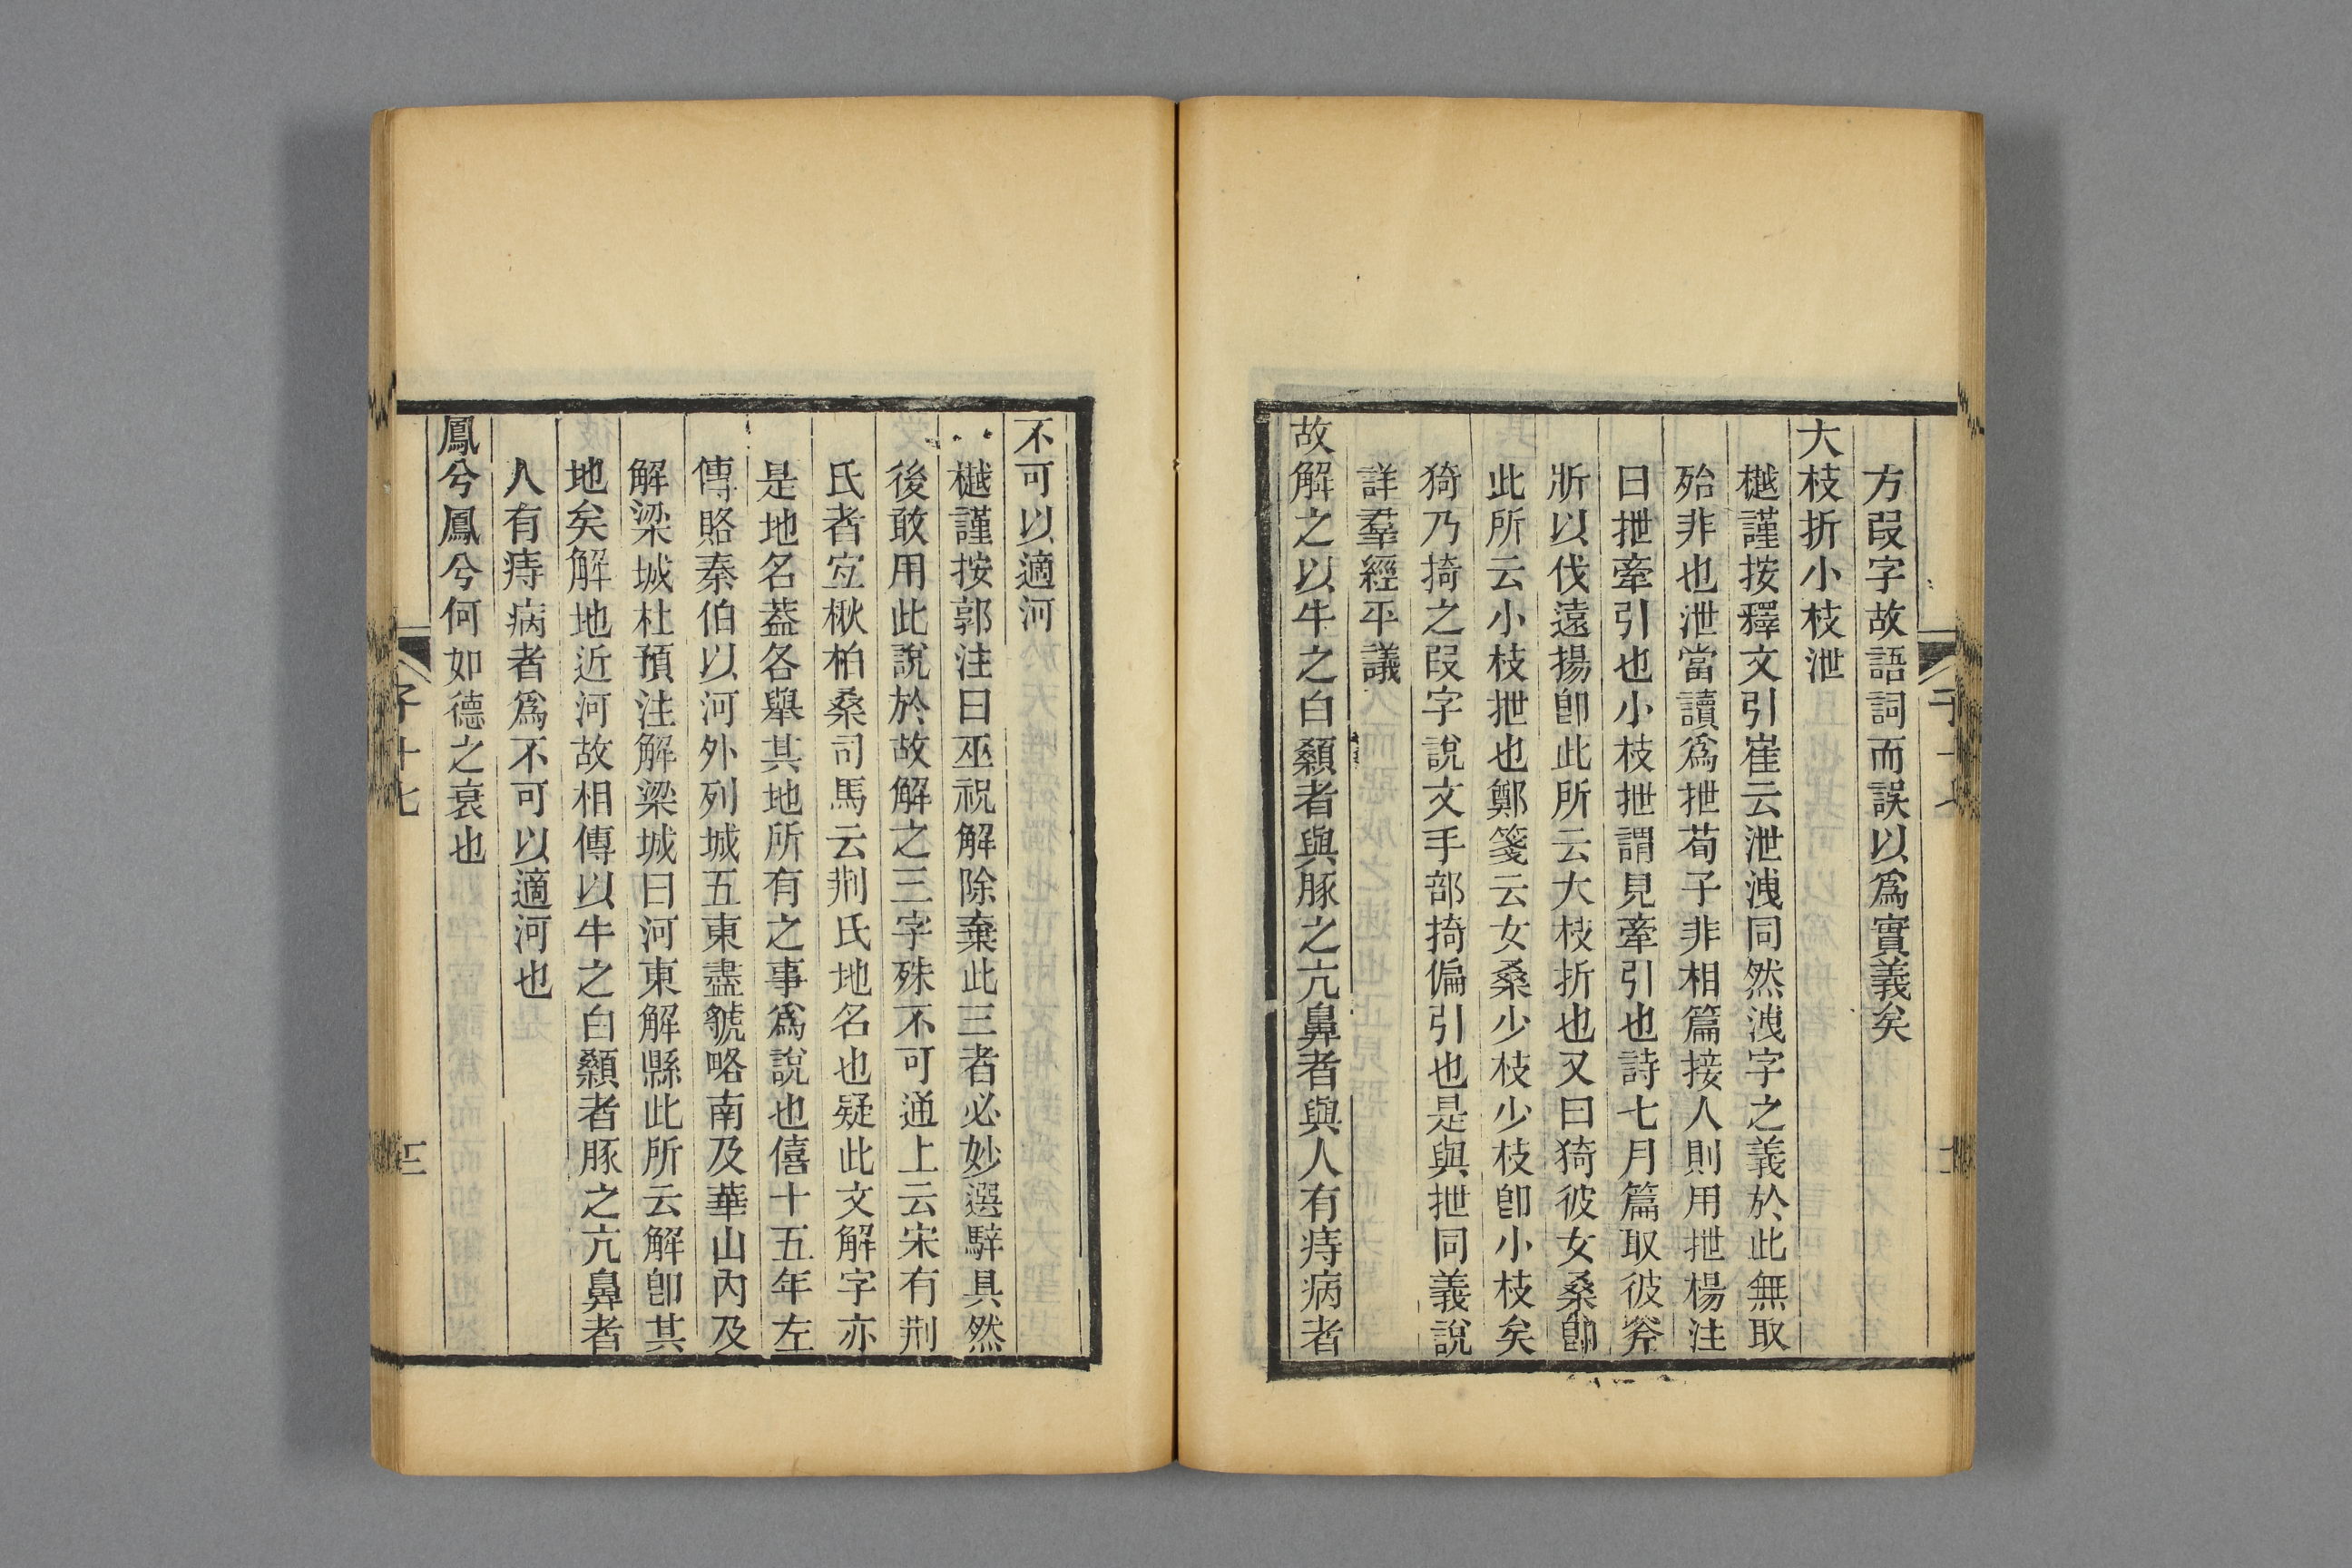 方叚字故語詞而誤以爲實義矣
大枝折小枝泄
樾謹按釋文引崔云泄洩同然洩字之義於此無取
殆非也泄當讀爲抴荀子非相篇接人則用抴楊注
曰抴牽引也小枝抴謂見牽引也詩七月篇取彼斧
斨以伐遠揚卽此所云大枝折也又曰猗彼女桑卽
此所云小枝抴也鄭箋云女桑少枝少枝卽小枝矣
猗乃掎之叚字說文手部掎偏引也是與抴同義說
詳羣經平議
故解之以牛之白顙者與豚之亢鼻者與人有痔病者
不可以適河
樾謹按郭注曰巫祝解除棄此三者必妙選騂具然
後敢用此說於故解之三字殊不可通上云宋有荆
氏者宜楸柏桑司馬云荆氏地名也疑此文解字亦
是地名葢各舉其地所有之事爲說也僖十五年左
傳賂秦伯以河外列城五東盡虢略南及華山內及
解梁城杜預注解梁城曰河東解縣此所云解卽其
地矣解地近河故相傳以牛之白顙者豚之亢鼻者
人有痔病者爲不可以適河也
鳳兮鳳兮何如德之衰也
子十七